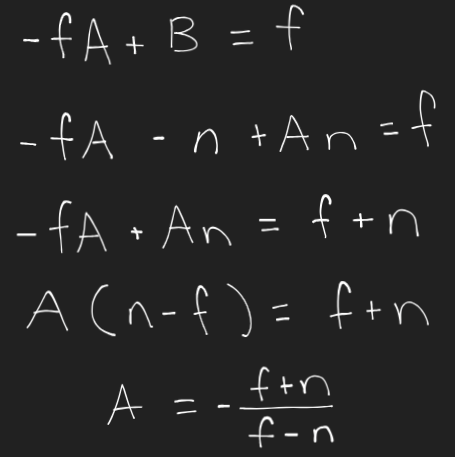 -fA + B = f
-fA - n + An = f
-fA + An = f + n
A(n-f) = f+n
A = - f+n / f-n